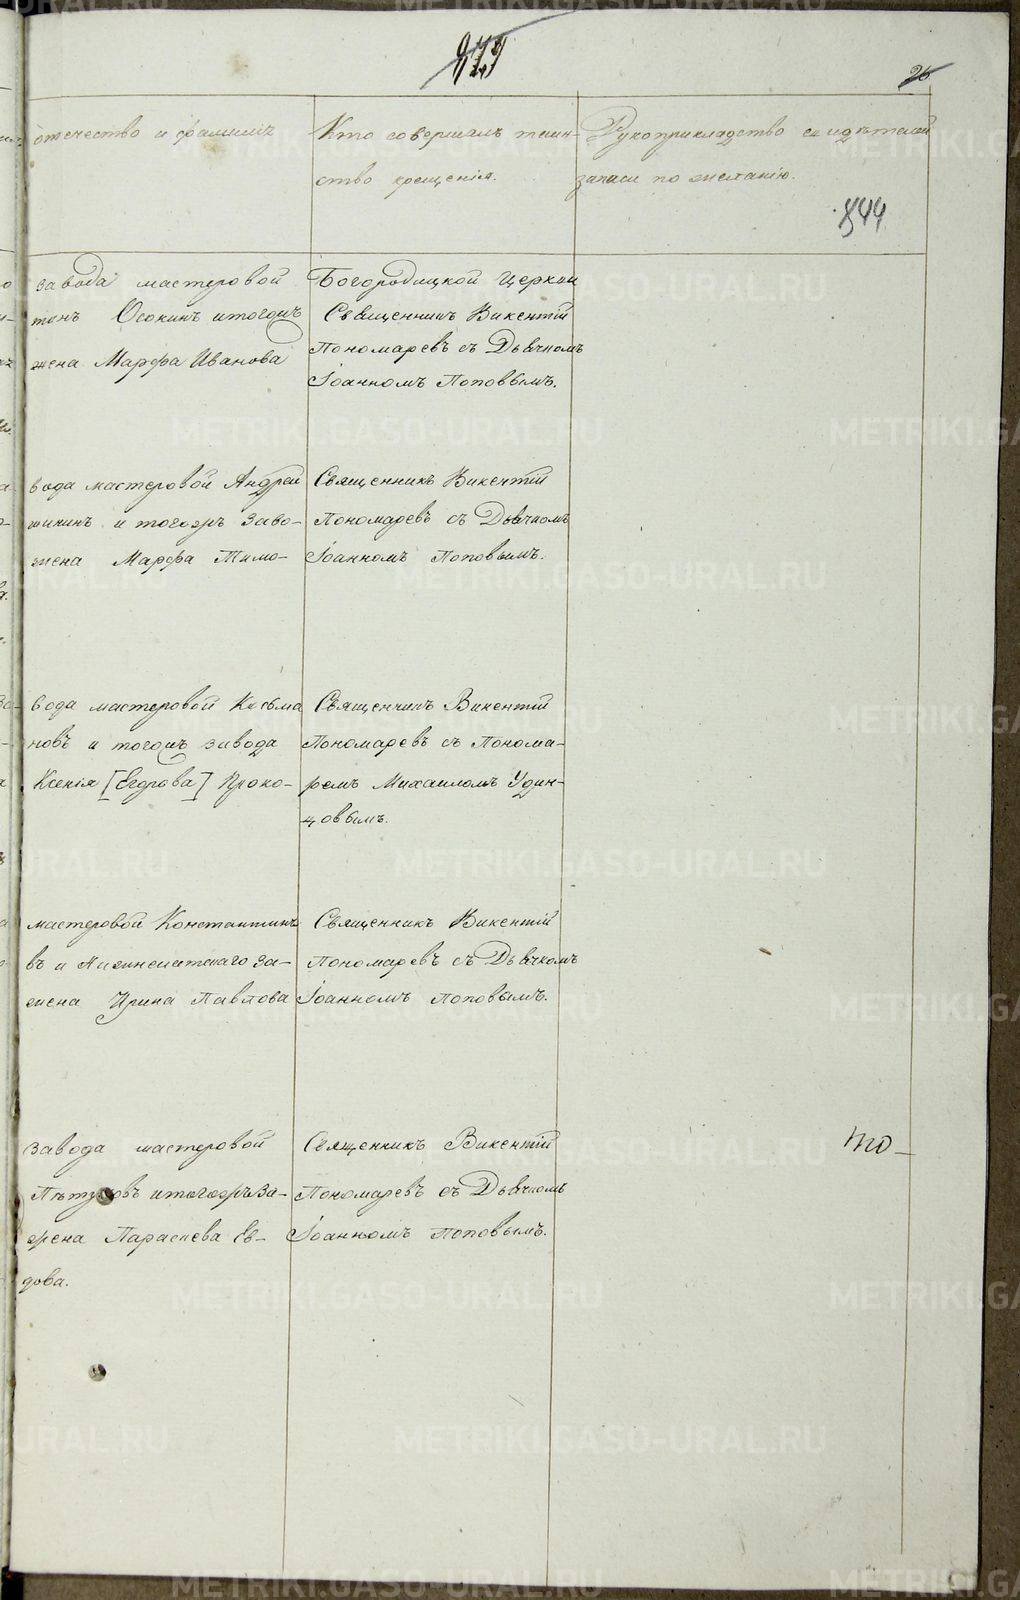 26
отчество и фамилія
Кто совершалъ таин-
ство крещенія.
Рукоприкладство свидѣтелей
записи по желанію.
844
завода мастеровой
Осокинъ и тогожъ
жена Марфа Иванова
Богородицкой Церкви
Священникъ Викентій
Пономаревъ съ Дьячкомъ
Іоанномъ Поповымъ.
вода мастеровой Андрей
шикинъ и тогожъ заво-
жена Марфа Тимо-
Священникъ Викентій
Пономаревъ съ Дьячкомъ
Іоанномъ Поповымъ.
вода мастеровой Козьма
новъ и тогожъ завода
Ксенія [Егорова] Проко-
Священникъ Викентій
Пономаревъ съ Понома-
ремъ Михаиломъ Удин-
цовымъ.
мастеровой Константинъ
въ и Нижнеисетскаго за-
жена Ирина Павлова
Священникъ Викентій
Пономаревъ съ Дьячкомъ
Іоанномъ Поповымъ.
завода мастеровой
Пѣтуховъ и тогожъ за-
жена Параскева Ев-
дова.
Священникъ Викентій
Пономаревъ съ Дьячкомъ
Іоанномъ Поповымъ.
METRIKI.GASO-URAL.RU